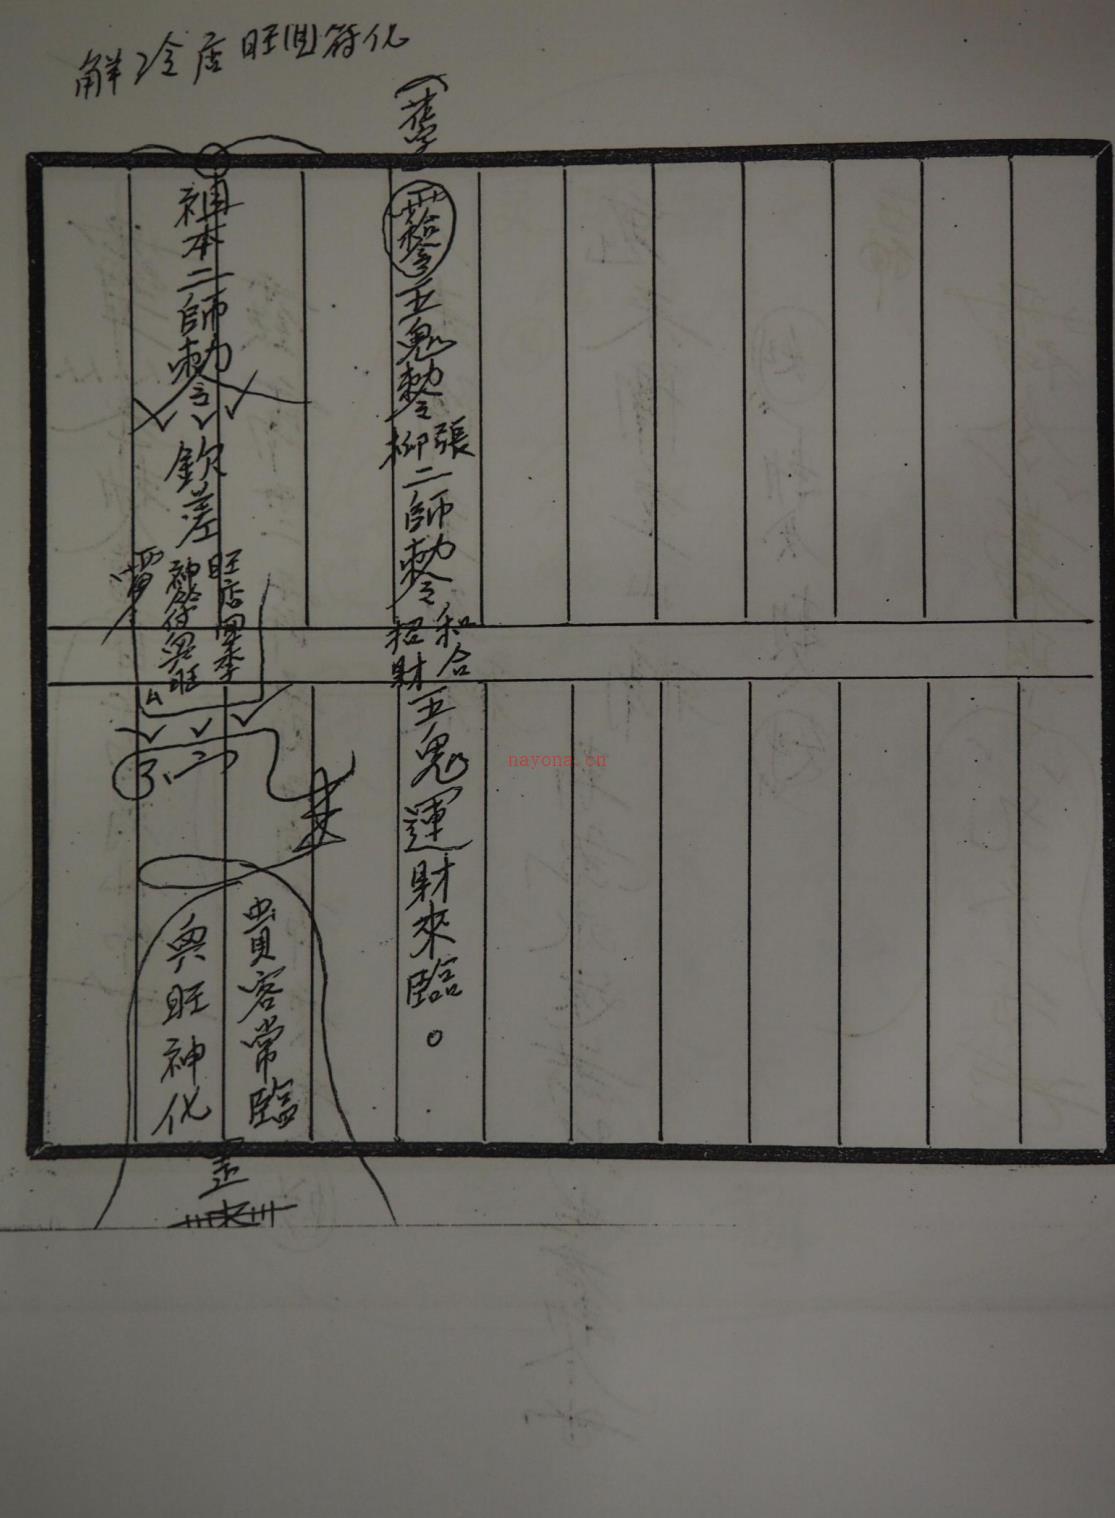 解冷店旺回符化
五鬼勅令張柳二師勅令和合招財五鬼運財來臨。
祖本二師勅令
欽差
旺店
神符興旺
貴客常臨
興旺神化
nayona.cn